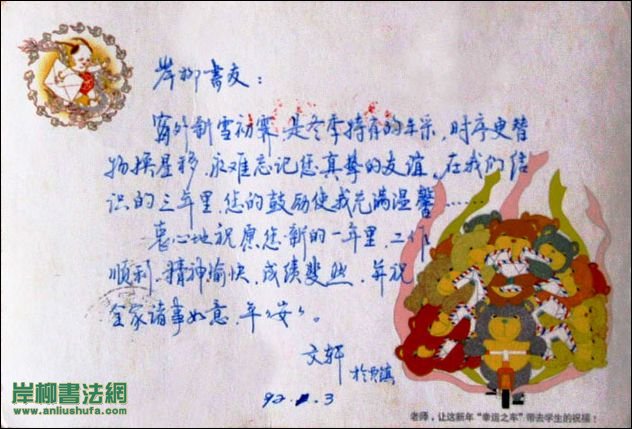 岸柳書友：
窗外新雪初霁,是冬季特有的丰采,时序更替
物换星移,永难忘记您真挚的友谊,在我们结
识的三年里,您的鼓励使我充满温馨……
衷心地祝愿您新的一年里,工作
顺利,精神愉快,成绩斐然,并祝
全家诸事如意,年“安”。
文轩
92.1.3
老师，让这新年“幸运之车”带去学生的祝福！
岸柳書法網
www.anliushufa.com